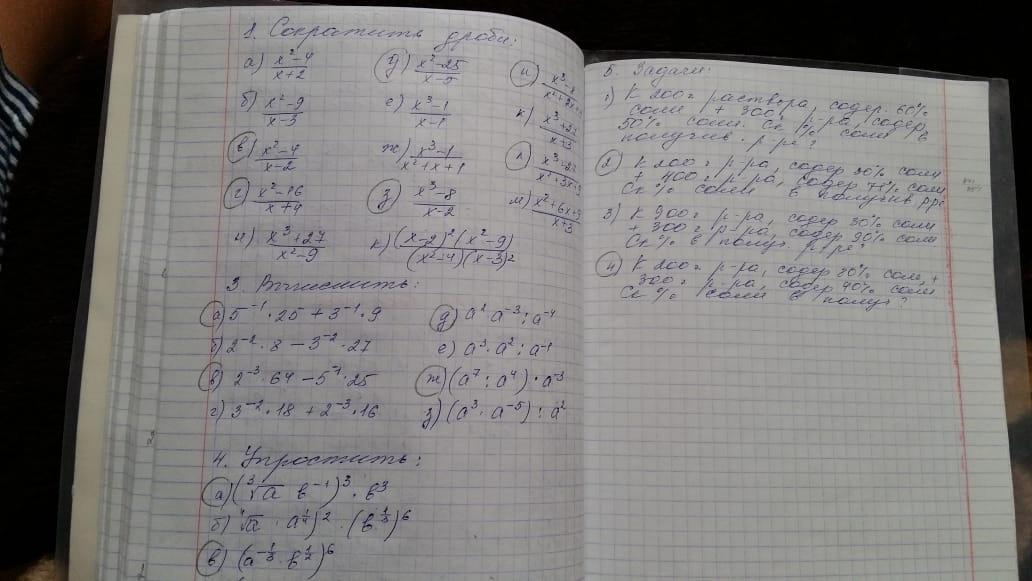 1. Сократить дроби:
а) x²-4/x+2 д) x²-25/x-5 и) x³-8/x²+2x+
б) x²-9/x-3 е) x³-1/x-1 к) x³+27/x+3
в) x²-4/x-2 ж) x³-1/x²+x+1 л) x³+27/x²+3x+9
г) x²-16/x+4 з) x³-8/x-2 м) x²+6x+9/x+3
н) x³+27/x²-9 к) (x-2)²(x²-9)/(x²-4)(x-3)²
3. Вычислить:
а) 5⁻¹·25+3⁻¹·9 д) a²·a⁻³:a⁻⁴
б) 2⁻²·8-3⁻²·27 е) a³·a²:a⁻¹
в) 2⁻³·64-5⁻¹·25 ж) (a⁷:a⁴)·a⁻³
г) 3⁻²·18+2⁻³·16 з) (a³·a⁻⁵):a²
4. Упростить:
а) (∛a в⁻¹)³·в³
б) ∜a·a^¼)²·(в^⅓)⁶
в) (a^-⅓·в^½)⁶
5. Задачи:
1) К 200г раствора, содер. 60%
соли + 300г р-ра, содер.
50% соли. Ск % соли в
получив. р-ре?
2) К 200г р-ра, содер 30% соли
+ 400г р-ра, содер 75% соли
Ск % соли в получив р-ре
3) К 900г р-ра, содер 30% соли
+ 300г р-ра, содер 90% соли
Ск % в получ. р-ре?
4) К 200г р-ра, содер 80% соли, +
300г р-ра, содер 40% соли
Ск % соли в получ?